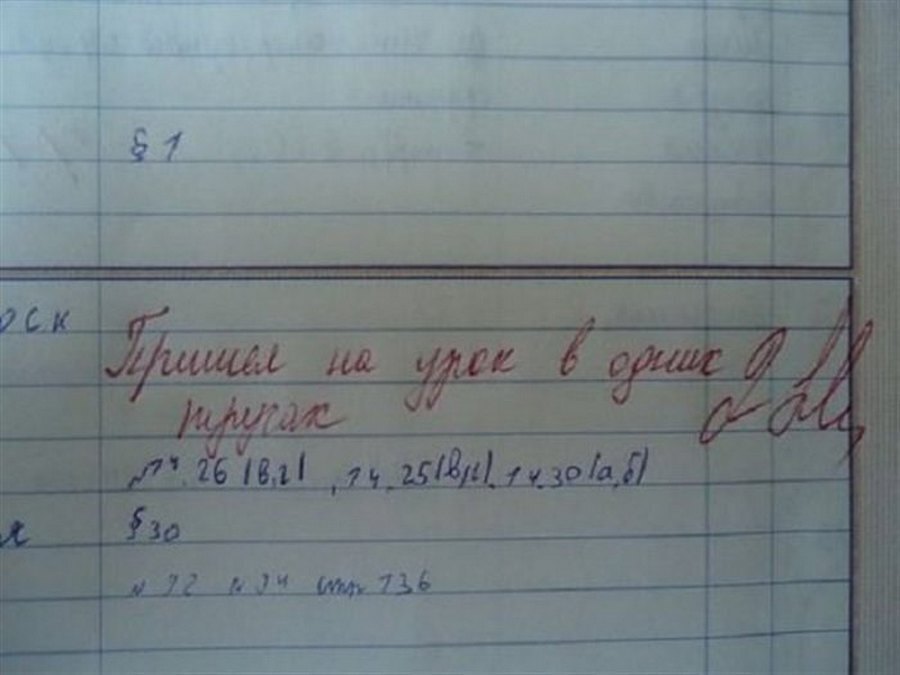 § 1
оск
Пришел на урок в одних 2
трусах
№14.26(в,г), 14.25(в,г), 14.30(а,б)
я
§ 30
№ 92 № 94 стр 136